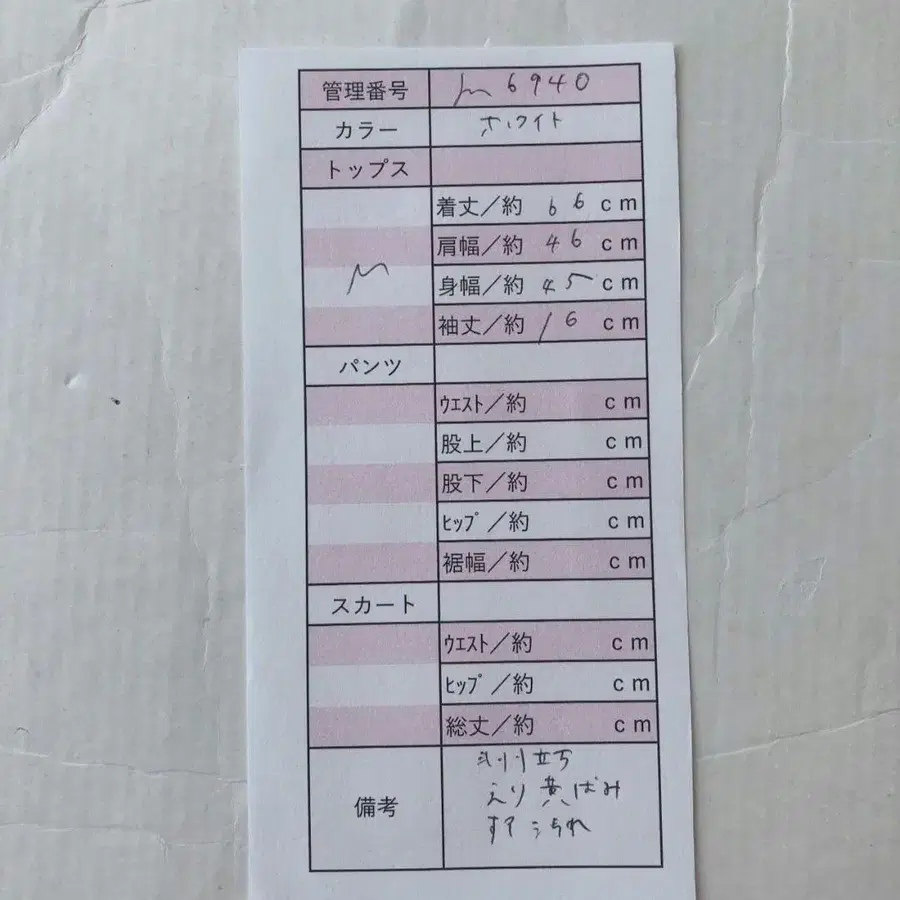 管理番号 m6940
カラー ホワイト
トップス
M
着丈/約 66 cm
肩幅/約 46 cm
身幅/約 45 cm
袖丈/約 16 cm
パンツ
ウエスト/約 cm
股上/約 cm
股下/約 cm
ヒップ/約 cm
裾幅/約 cm
スカート
ウエスト/約 cm
ヒップ/約 cm
総丈/約 cm
備考
毛羽立ち
えり 黄ばみ
すそ 汚れ